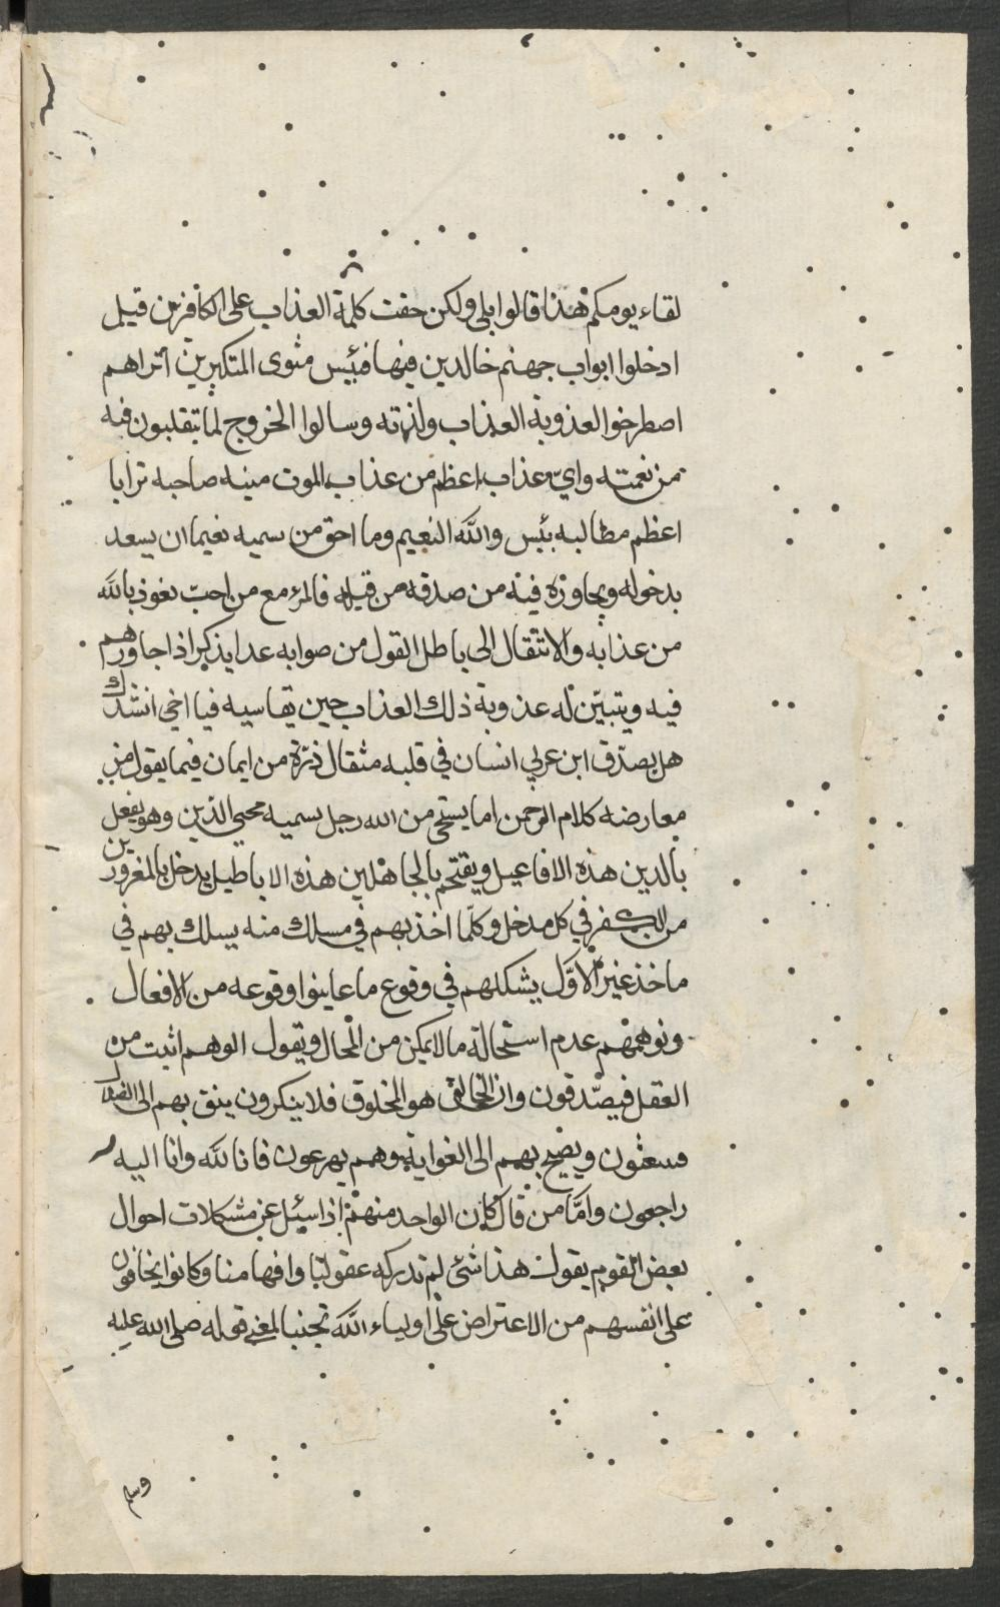 لقاء يومكم هذا قالوا بلى ولكن حقت كلمة العذاب على الكافرين قيل
ادخلوا ابواب جهنم خالدين فيها فبئس مثوى المتكبرين اتراهم
اصطرخوا لعذوبة العذاب ولذته وسالوا الخروج لما يتقلبون فيه
من نعمته واي عذاب اعظم من عذاب الموت مينه صاحبه ترابا
اعظم مطالبه بئس والله النعيم وما احق من سميه نعيما ان يسعد
بدخوله ويجاوزه فيه من صدقه من قبله فالمرء مع من احب نعوذ بالله
من عذابه والانتقال الى باطل القول من صوابه عدا يذكر اذا جاورهم
فيه ويتبين له عذوبة ذلك العذاب حين يقاسيه فيا اخي انشدك
هل يصدق ابن عربي انسان في قلبه مثقال ذرة من ايمان فيما يقول من
معارضه كلام الرحمن اما يستحي من الله رجل يسميه محيي الدين وهو يفعل
بالدين هذه الافاعيل ويقتحم بالجاهلين هذه الاباطيل يدخل بالمغرورين
من الكفر في كل مدخل وكلما اخذ بهم في مسلك منه يسلك بهم في
ماخذ غير الاول يشككهم في وقوع ما عاينوا وقوعه من الافعال
ونوهمهم عدم استحالة ما لا يمكن من المحال ويقول الوهم اثبت من
العقل فيصدقون وان الخالق هو المخلوق فلا ينكرون ينق بهم الى الضلال
ويصيح بهم الى الغواية وهم يهرعون فانا لله وانا اليه
راجعون واما من قال كان الواحد منهم اذا سئل عن مشكلات احوال
بعض القوم يقول هذا شئ لم تدركه عقولنا وافهامنا وكانوا يخافون
على انفسهم من الاعتراض على اولياء الله تجنبا لمعنى قوله صلى الله عليه
وسلم